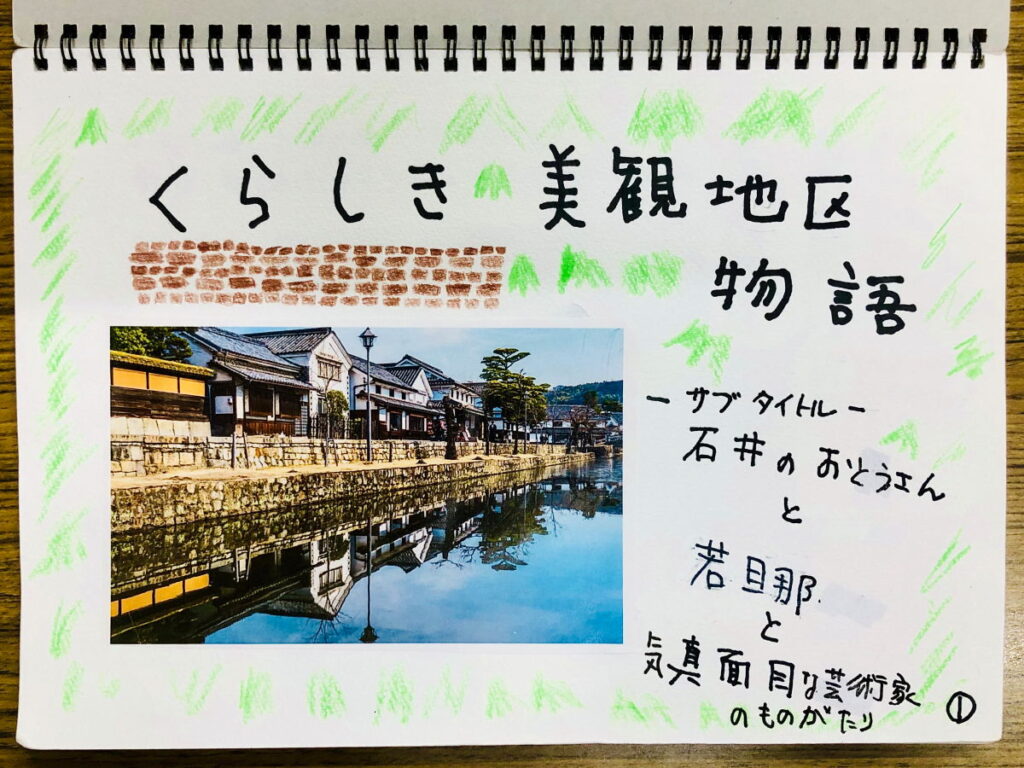 くらしき 美観地区
物語
ー サブタイトル ー
石井のおとうさん
と
若旦那
と
気真面目な芸術家
のものがたり
①